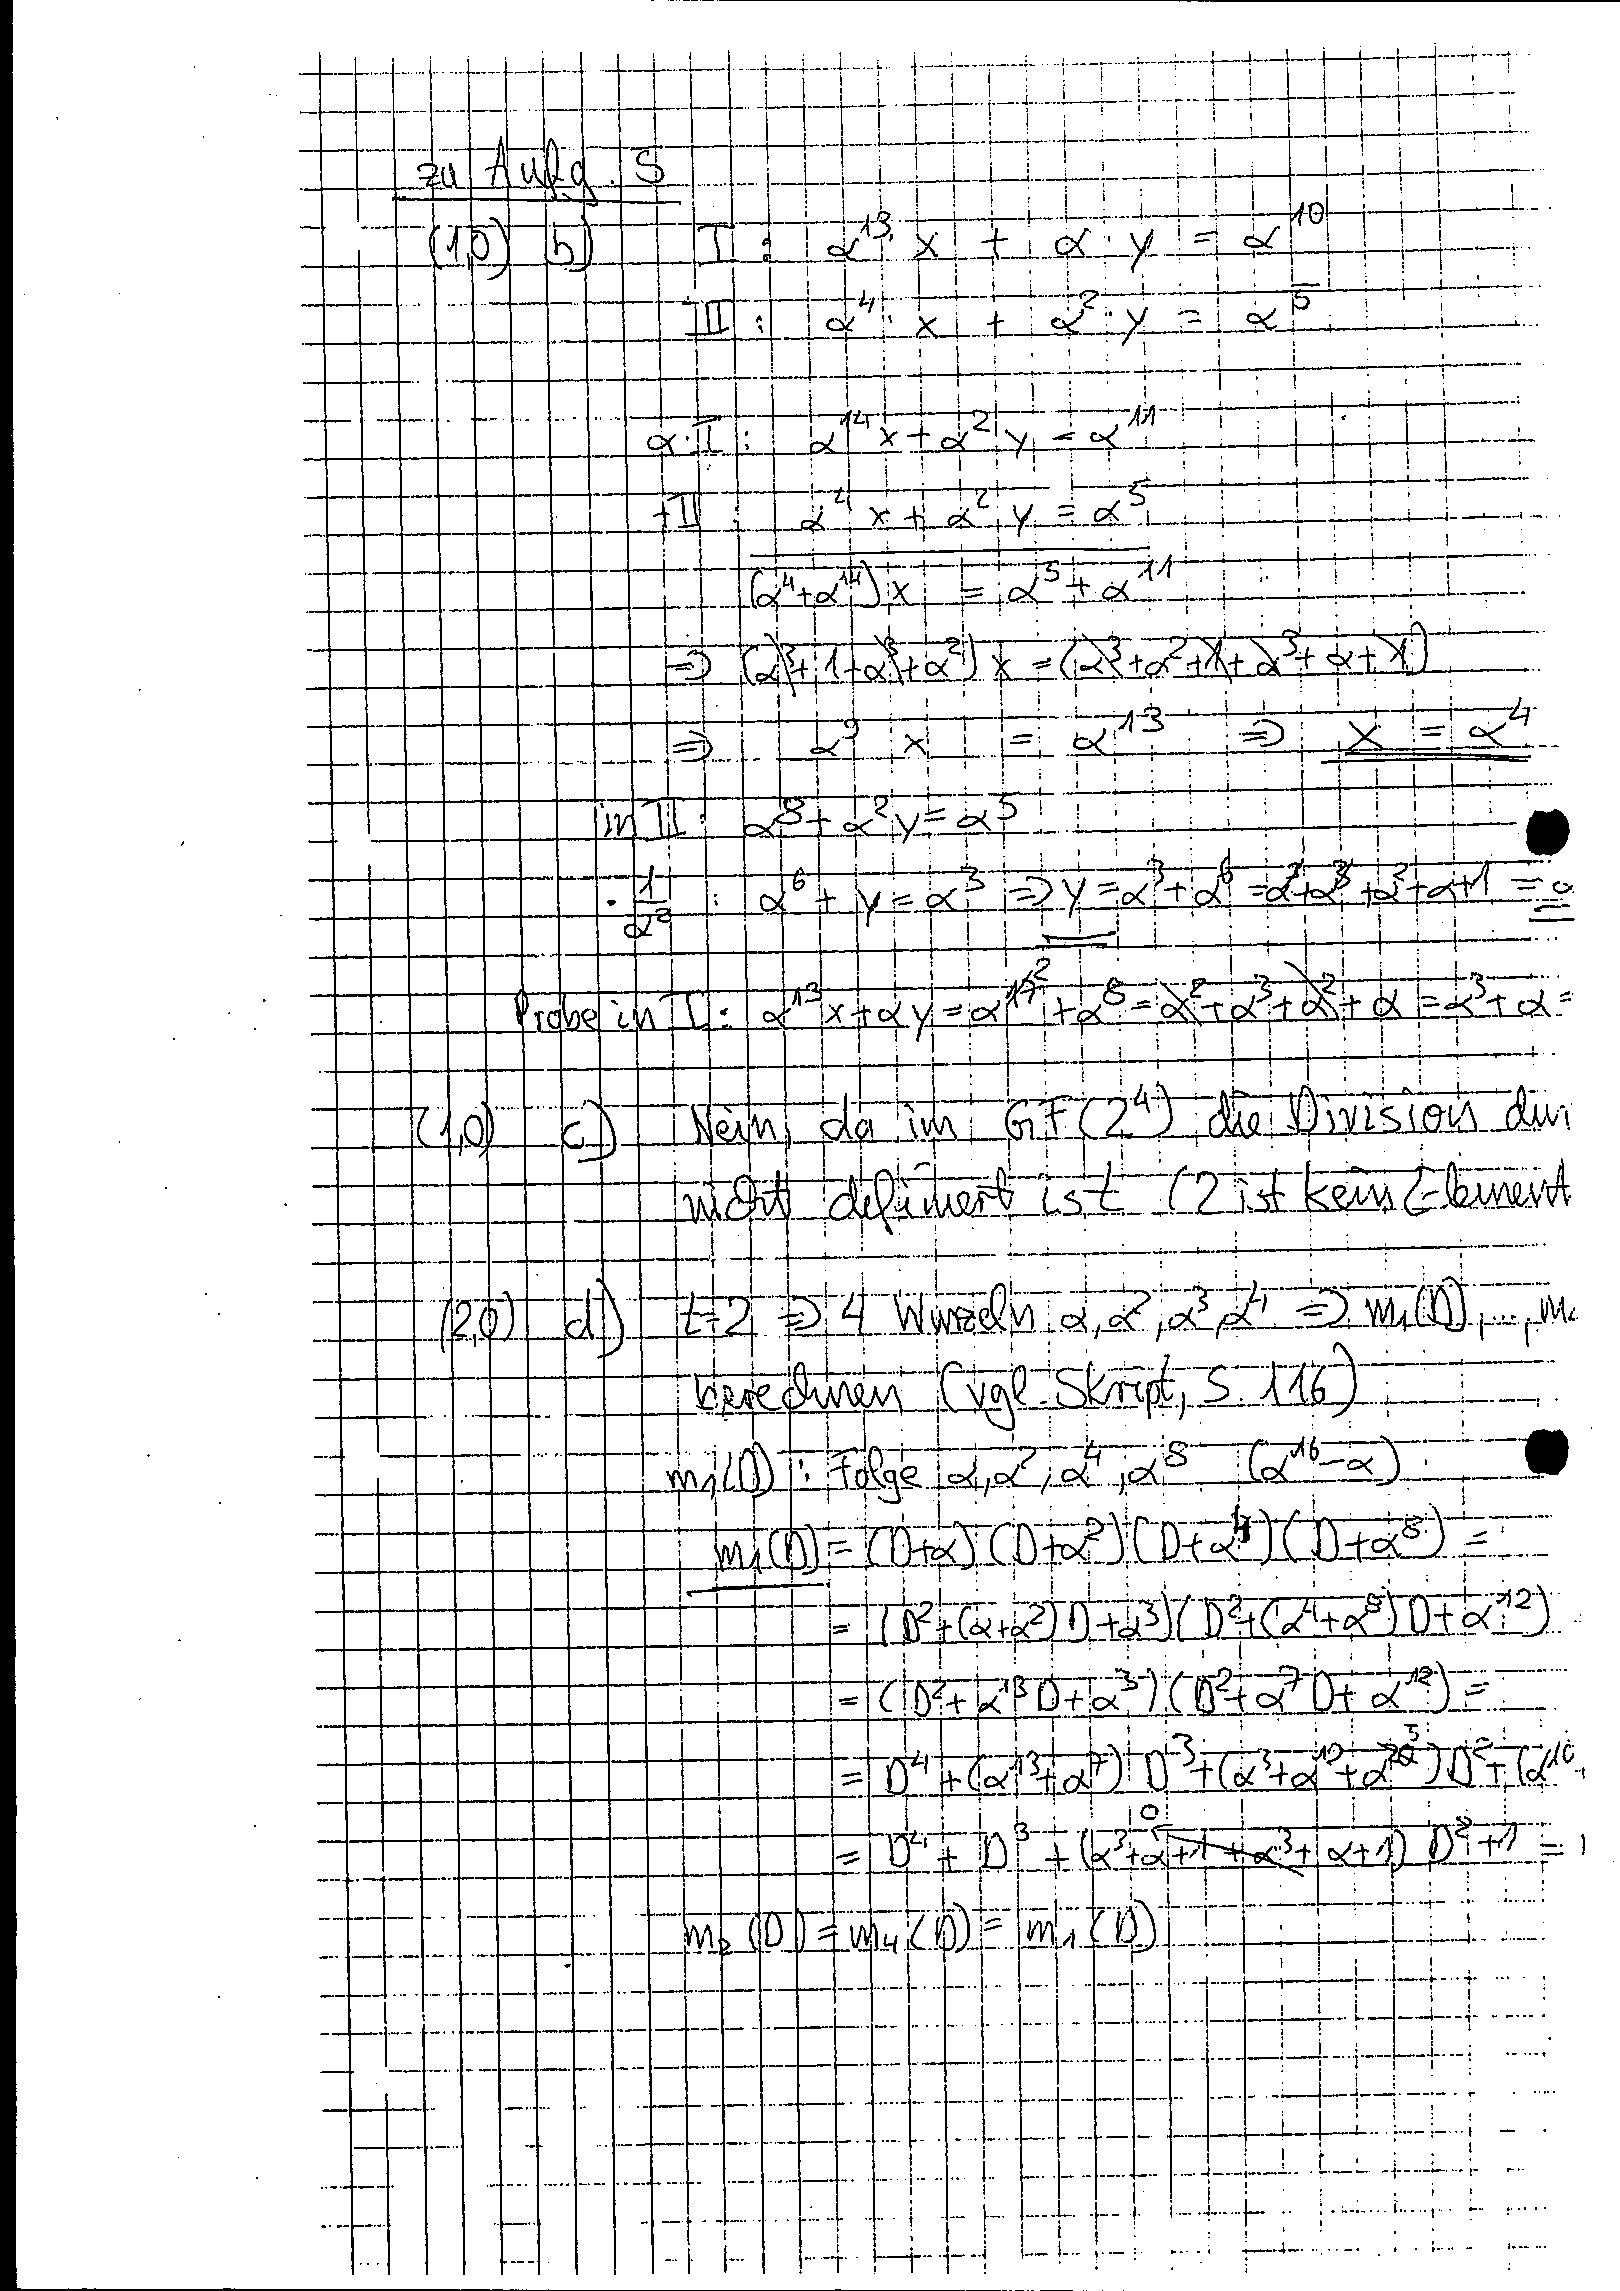 zu Aufg. 5
(1,0) b) I: α^13 · x + α · y = α^10
II: α^4 · x + α^2 · y = α^5
α·I: α^14 x + α^2 y = α^11
+II: α^4 x + α^2 y = α^5
(α^4 + α^14) x = α^5 + α^11
⇒ (α^3 + 1 + α^3 + α^2) x = (α^3 + α^2 + 1 + α^3 + α + 1)
⇒ α^9 x = α^13 ⇒ x = α^4
in II: α^8 + α^2 y = α^5
· 1/α^2 : α^6 + y = α^3 ⇒ y = α^3 + α^6 = α^3 + α^3 + α^2 + α + 1 =
Probe in I: α^13 x + α y = α^17 2 + α^8 = α^2 + α^3 + α^2 + α = α^3 + α =
(1,0) c) Nein, da im GF(2^4) die Division
nicht definiert ist (2 ist kein Element
(2,0) d) t=2 ⇒ 4 Wurzeln α, α^2, α^3, α^4 ⇒ m₁(D), ...,
berechnen (vgl. Skript, S. 116)
m₁(D): Folge α, α^2, α^4, α^8 (α^16 = α)
m₁(D) = (D+α)(D+α^2)(D+α^4)(D+α^8) =
= (D^2+(α+α^2)D+α^3)(D^2+(α^4+α^8)D+α^12)
= (D^2+α^13 D+α^3)(D^2+α^7 D+α^12) =
= D^4 + (α^13+α^7) D^3 + (α^3+α^12+α^20 5) D^2 + (α^10
= D^4 + D^3 + (α^3+α+1+α^3+α+1) 0 D^2 + 1 =
m₂(D) = m₄(D) = m₁(D)